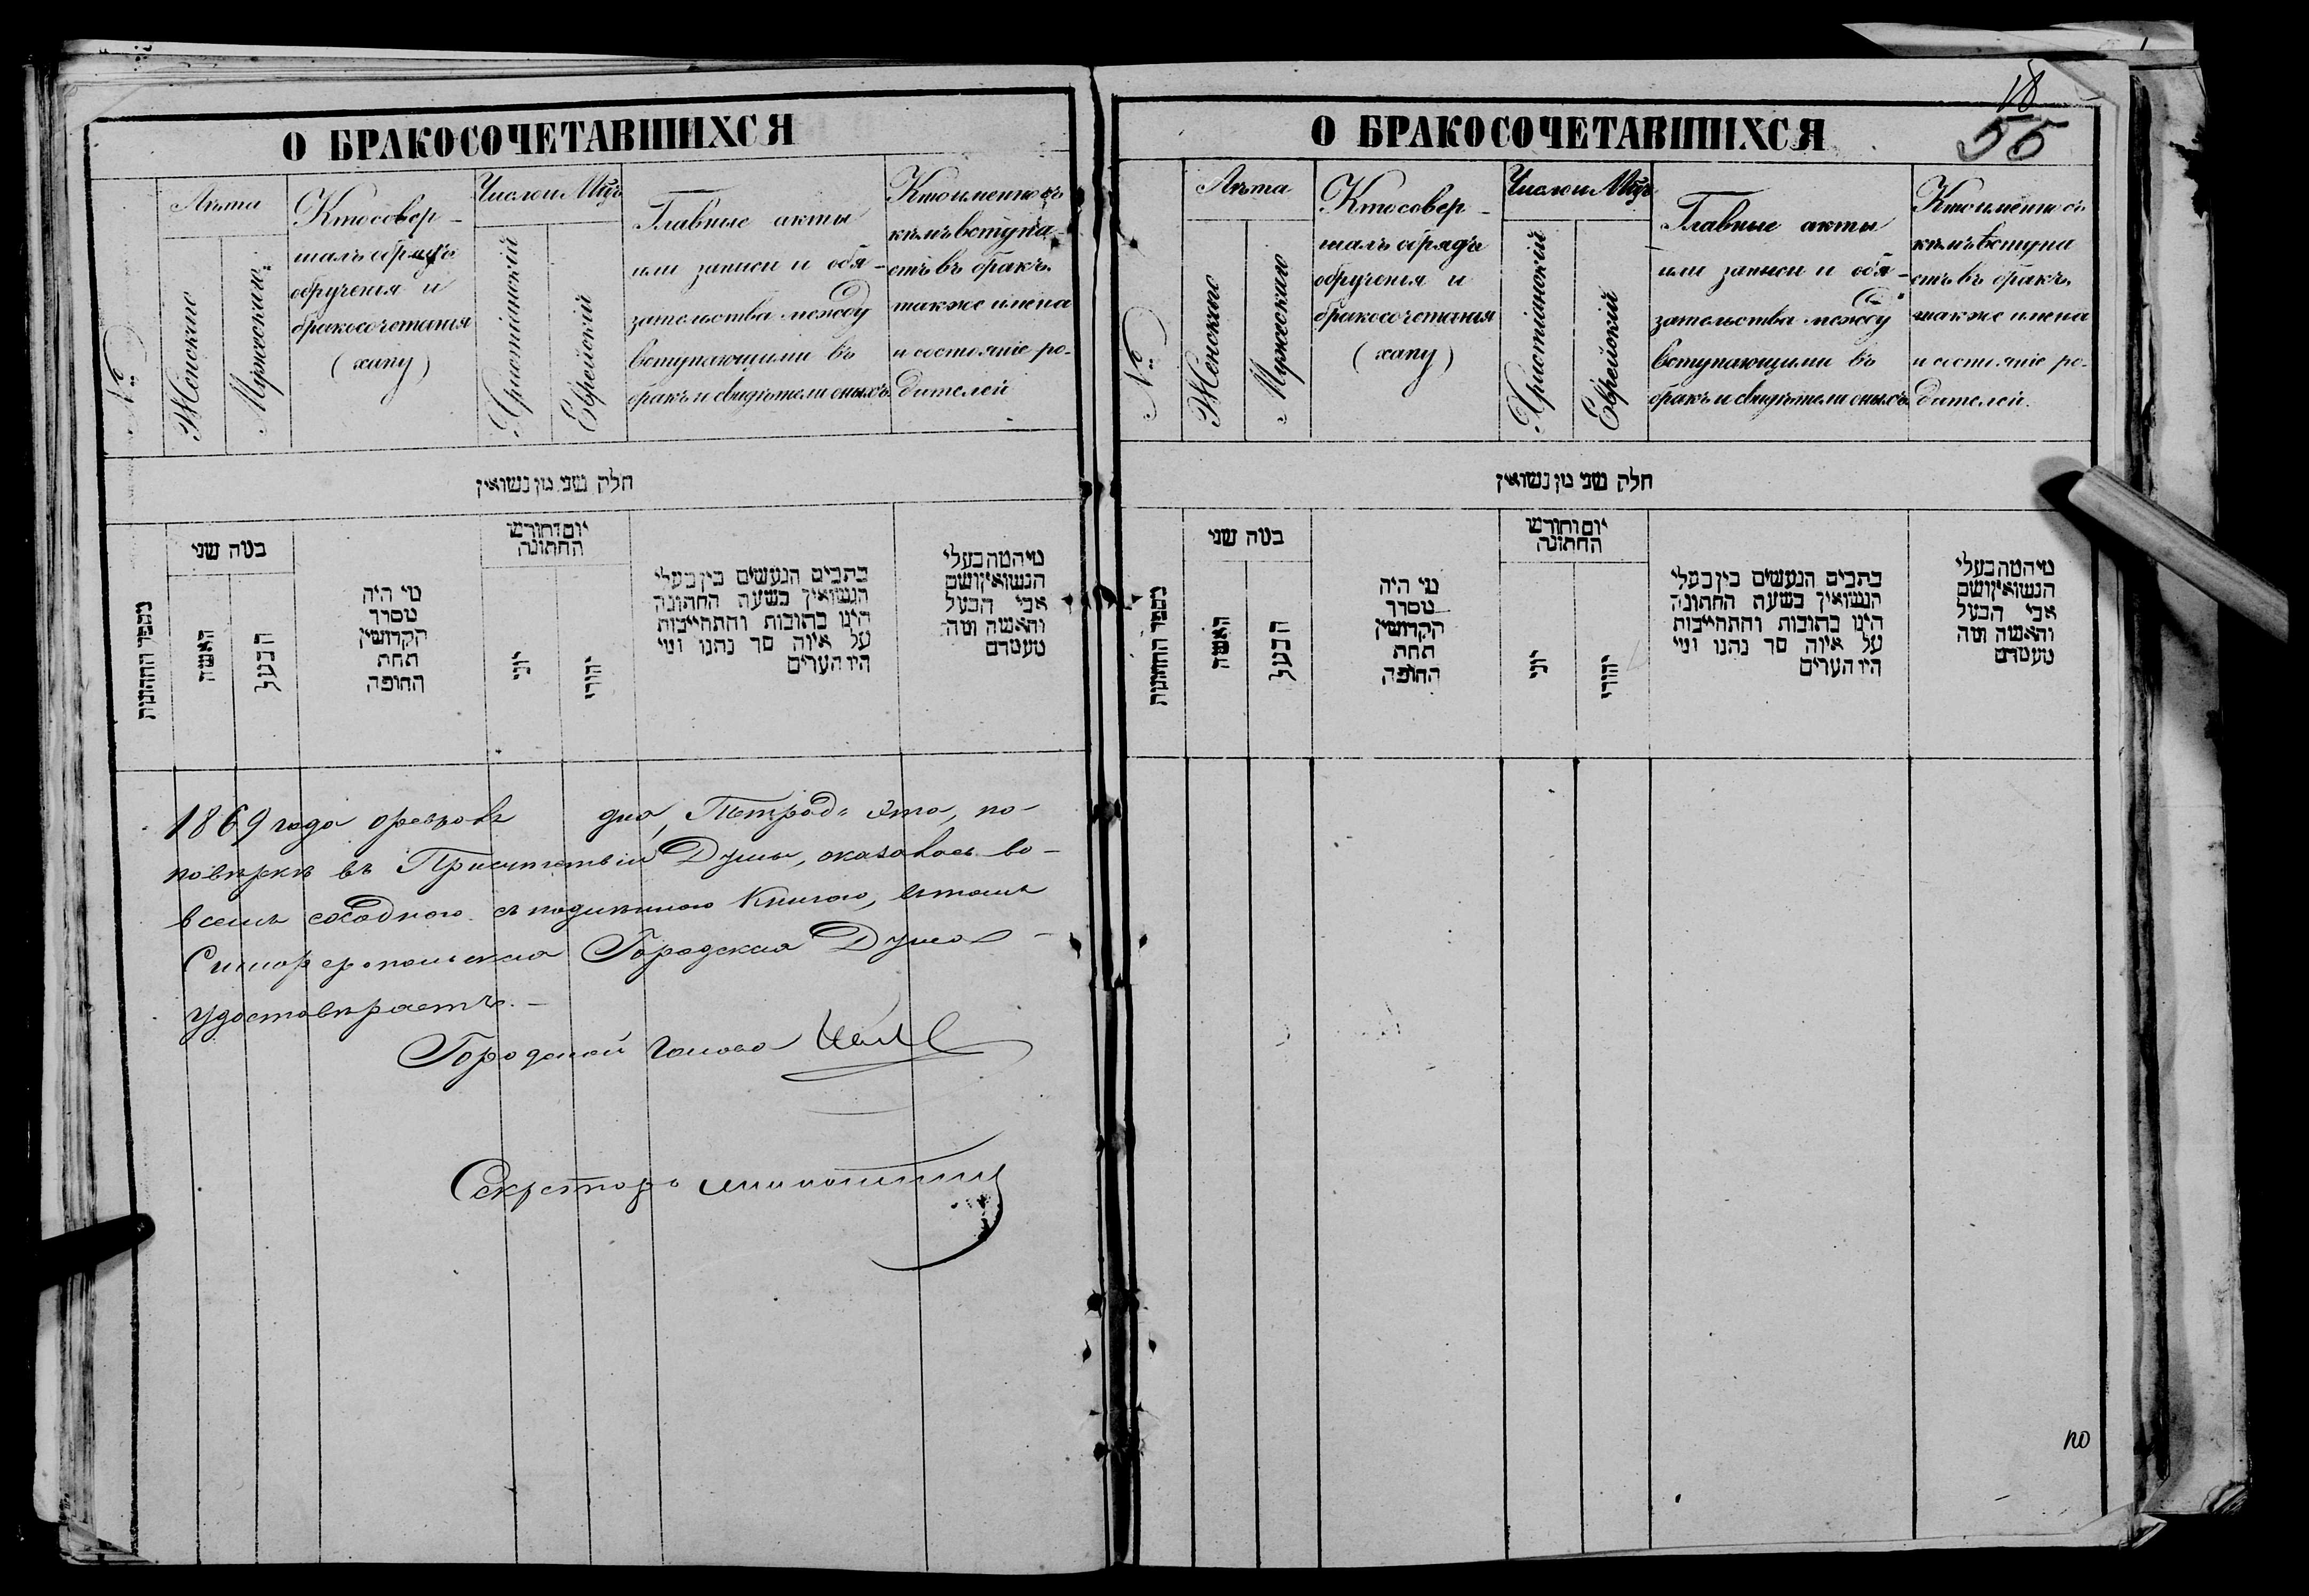 О БРАКОСОЧЕТАВШИХСЯ
№
Лѣта
Женскаго
Мужескаго
Кто совер-
шалъ обрядъ
обрученія и
бракосочетанія
(хупу)
Число и Мѣц.
Христіанскій
Еврейскій
Главные акты
или записи и обя-
зательства между
вступающими въ
бракъ и свидѣтели оныхъ
Кто именно съ
кѣмъ вступа-
етъ въ бракъ.
также имена
и состояніе ро-
дителей
חלק שני מן נשואין
מספר החתונות
כמה שני
האשה
הבעל
מי היה
מסדר
הקדושין
תחת
החופה
יום וחודש
החתונה
יוני
יהודי
כתבים הנעשים בין בעלי
הנשואין בשעת החתונה
היינו כתובות והתחייבות
על איזה סך נתנו ומי
היו העדים
מי המה בעלי
הנשואין ושם
אבי הבעל
והאשה ומה
מעמדם
1869 года дня, Тетрадь эта, по
повѣркѣ въ Присутствіи Думы, оказалась во
всемъ сходною съ подлинною Книгою, въ томъ
Симферопольская Городская Дума
удостовѣряетъ.-
Городской голова
Секретарь
О БРАКОСОЧЕТАВШИХСЯ
18
55
№
Лѣта
Женскаго
Мужескаго
Кто совер-
шалъ обрядъ
обрученія и
бракосочетанія
(хупу)
Число и Мѣц.
Христіанскій
Еврейскій
Главные акты
или записи и обя-
зательства между
вступающими въ
бракъ и свидѣтели оныхъ
Кто именно съ
кѣмъ вступа
етъ въ бракъ.
также имена
и состояніе ро-
дителей.
חלק שני מן נשואין
מספר החתונות
כמה שני
האשה
הבעל
מי היה
מסדר
הקדושין
תחת
החופה
יום וחודש
החתונה
יוני
יהודי
כתבים הנעשים בין בעלי
הנשואין בשעת החתונה
היינו כתובות והתחייבות
על איזה סך נתנו ומי
היו העדים
מי המה בעלי
הנשואין ושם
אבי הבעל
והאשה ומה
מעמדם
по